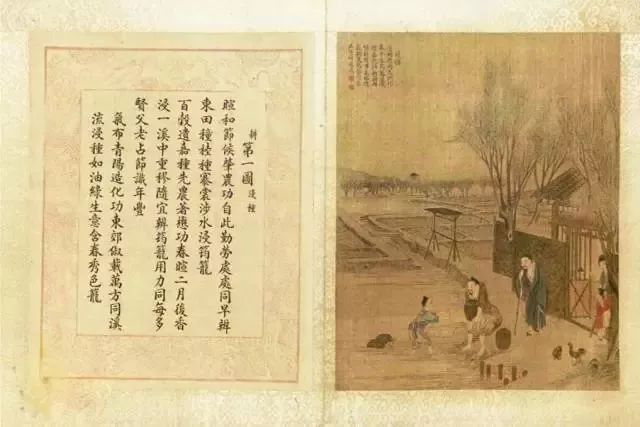 耕 第一圖 浸種
暄和節候肇農功自此勤勞處處同早辨
東田穜稑種褰裳涉水浸筠籠
百穀遺嘉種先農著懋功春暄二月後香
浸一溪中重穋隨宜辨筠籠用力同每多
賢父老占節識年豐
氣布青陽造化功東郊俶載萬方同溪
流浸種如油綠生意含春秀色籠